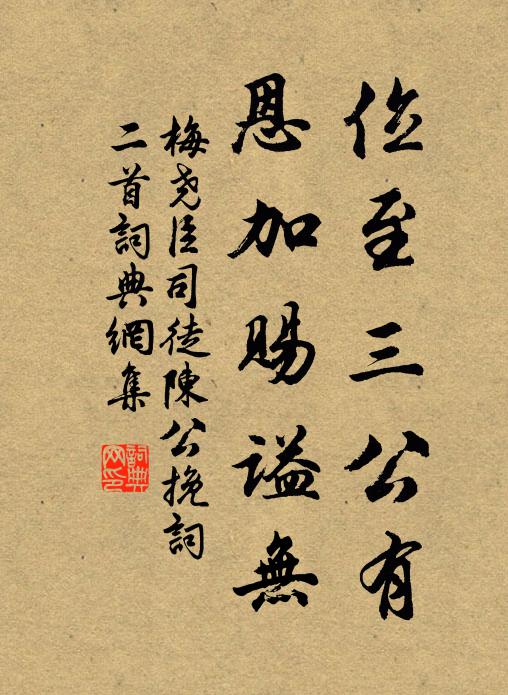 位至三公有
恩加賜謚無
梅堯臣司徒陳公挽詞
二首詞典網集
詞典
网印